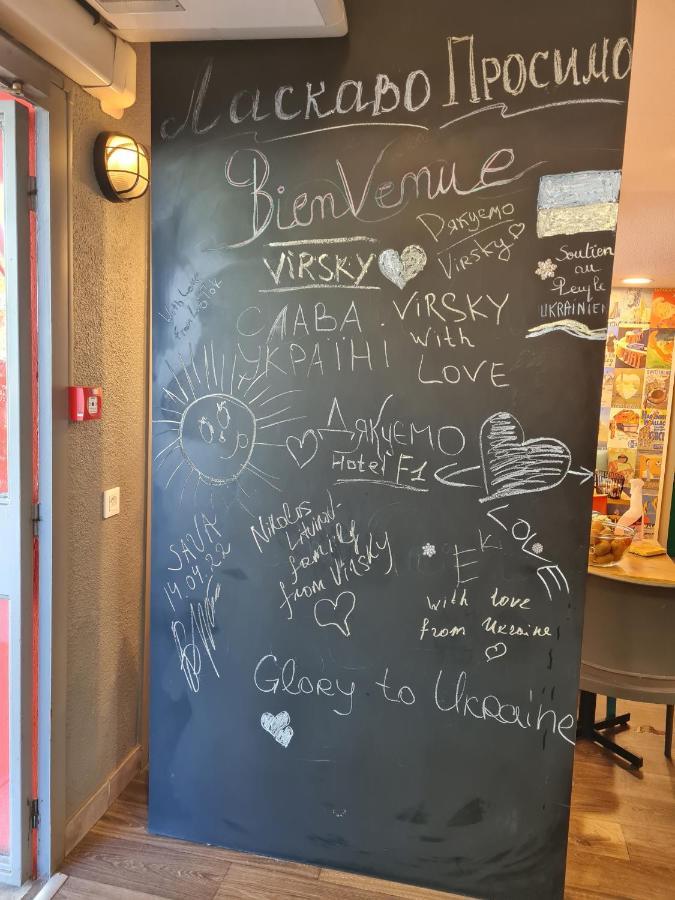 Ласкаво Просимо
BienVenue
Дякуємо
Virsky
VIRSKY
Soutien
au
Peuple
UKRAINIEN
With Love
from
СЛАВА
УКРАЇНІ
VIRSKY
with
LOVE
ДЯКУЄМО
Hotel F1
LOVE
SAVA
14.07.22
Nikolas
family
from VIRSKY
E K
with love
from Ukraine
Glory to Ukraine